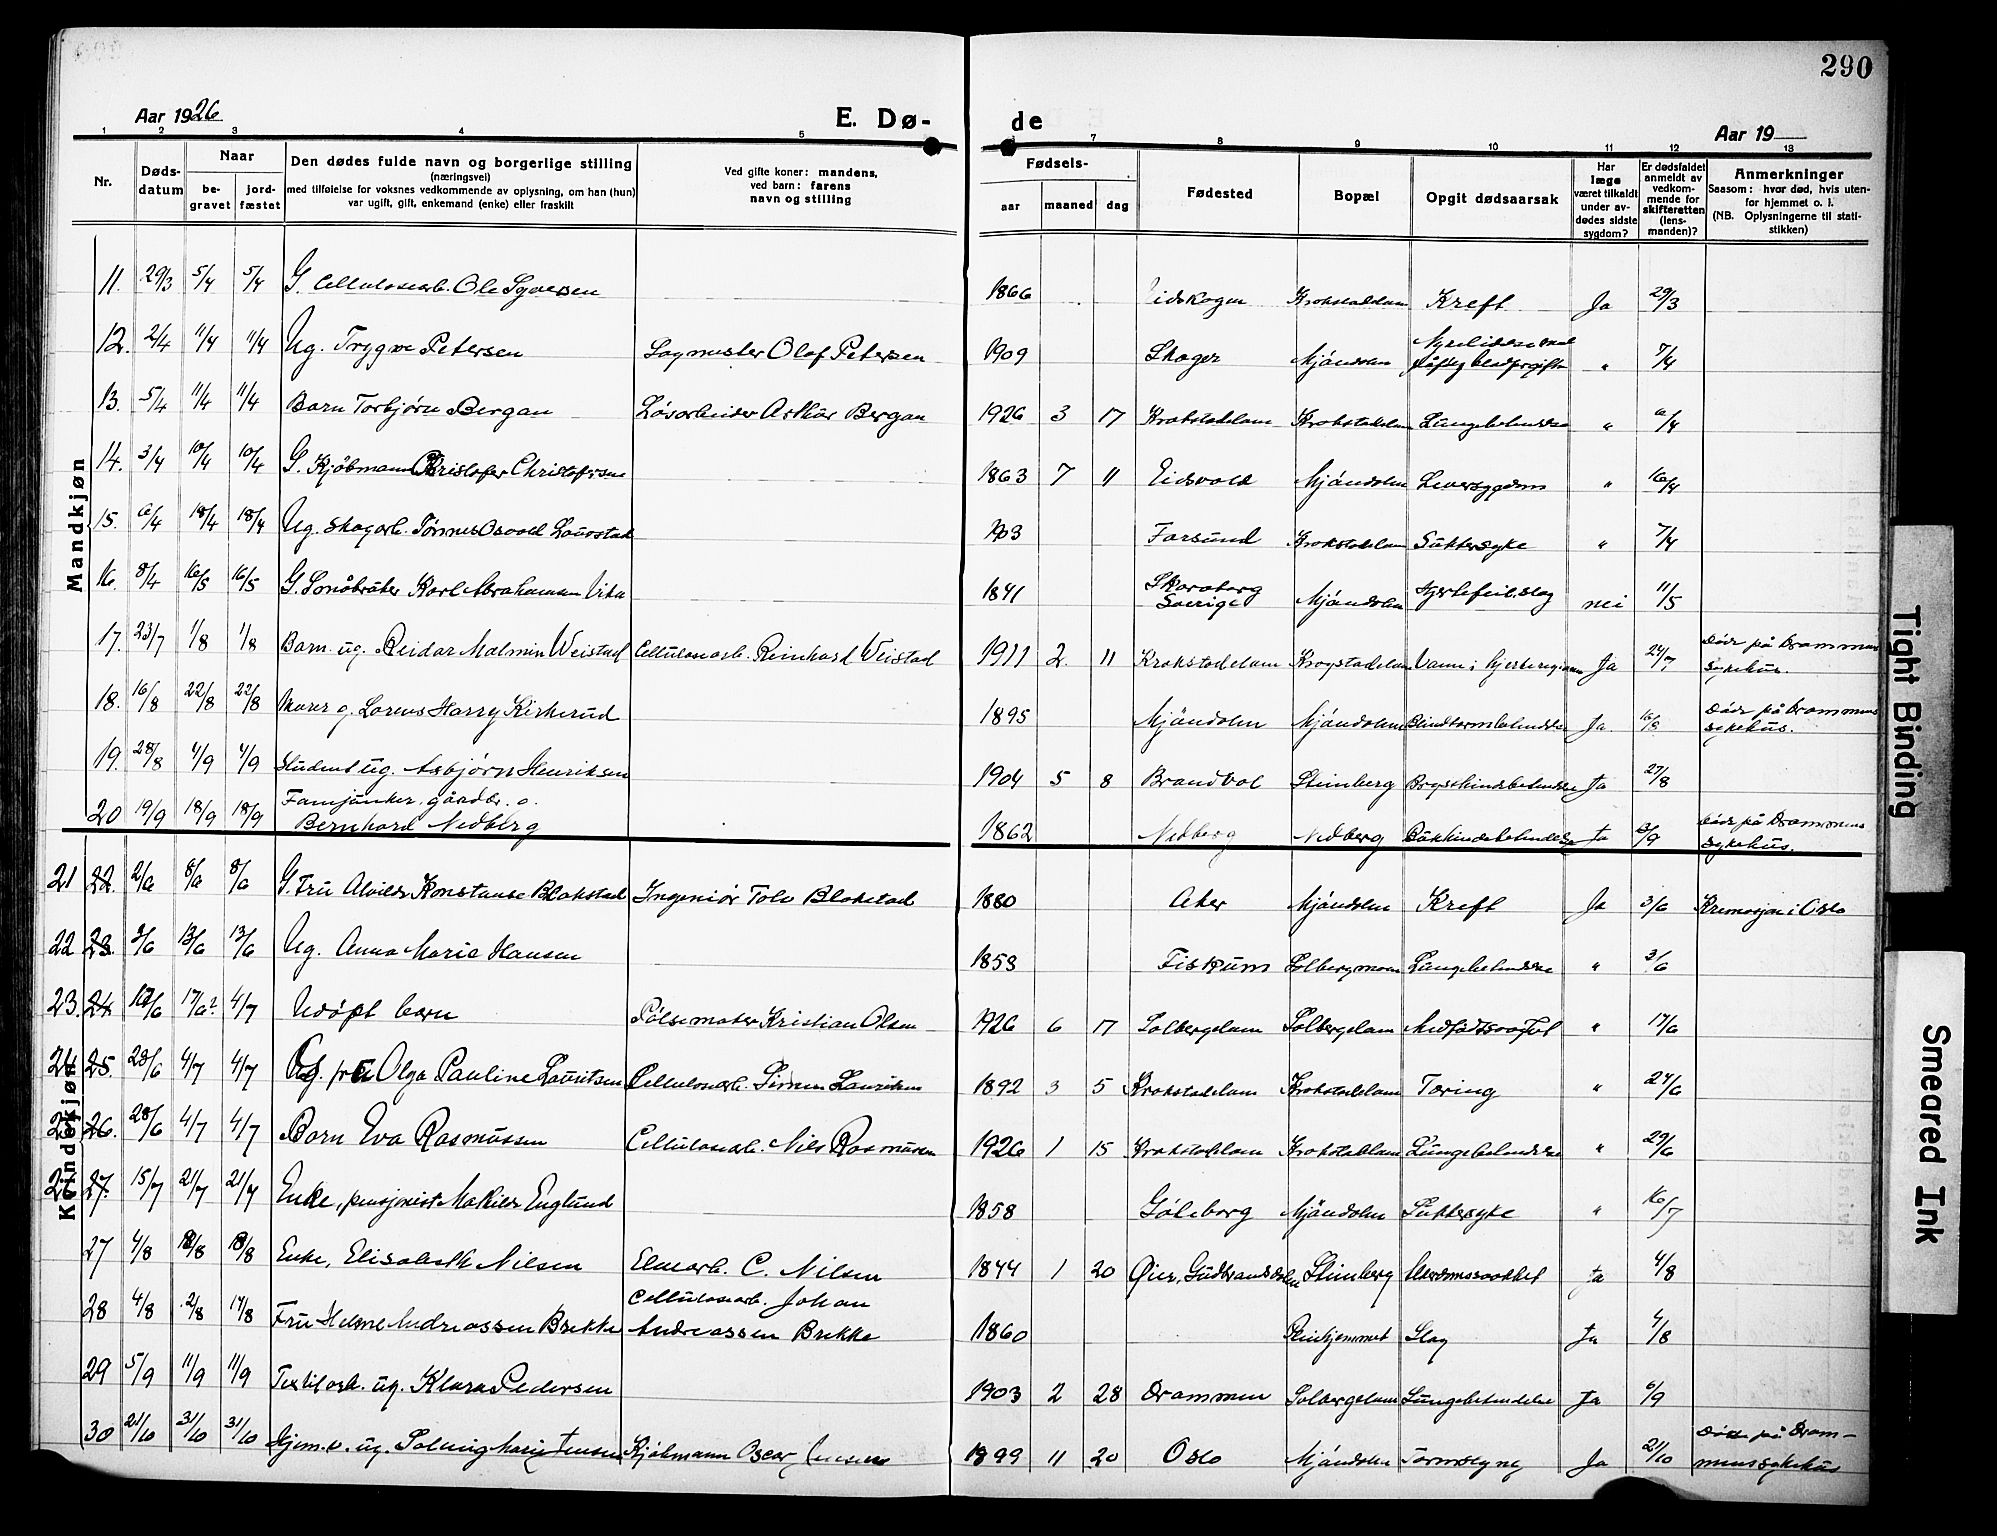 290
Aar 1926
E. Dø-
de
Aar 19
1 2 3 4 5 7 8 9 10 11 12 13
Nr.
Døds-
datum
Naar
be-
gravet
jord-
fæstet
Den dødes fulde navn og borgerlige stilling
(næringsvei)
med tilføielse for voksnes vedkommende av oplysning, om han (hun)
var ugift, gift, enkemand (enke) eller fraskilt
Ved gifte koner: mandens,
ved barn: farens
navn og stilling
Fødsels-
aar
maaned
dag
Fødested
Bopæl
Opgit dødsaarsak
Har
læge
været tilkaldt
under av-
dødes sidste
sygdom?
Er dødsfaldet
anmeldt av
vedkom-
mende for
skifteretten
(lens-
manden)?
Anmerkninger
Saasom: hvor død, hvis uten-
for hjemmet o. l.
(NB. Oplysningerne til stati-
stikken)
Mandkjøn
11. 29/3 5/4 5/4 G. Cellulosearb. Ole Syversen 1866 Eidskogen Krokstadelven Kreft Ja 29/3
12. 2/4 11/4 11/4 Ug. Trygve Petersen Sagmester Olaf Petersen 1909 Skoger Mjøndalen " 7/4
13. 5/4 11/4 11/4 Barn Torbjørn Bergan Løsarbeider Arthur Bergan 1926 3 17 Krokstadelven Krokstadelven Lungebetendelse " 6/4
14. 3/4 10/4 10/4 G. Kjøbmann Kristofer Christofersen 1863 7 11 Eidsvold Mjøndalen Leversygdom " 16/4
15. 6/4 18/4 18/4 Ug. Skogarb. Tønnes Osvald Lauvstad 1903 Farsund Krokstadelven Sukkersyke " 7/4
16. 8/4 16/5 16/5 G. Karl Abrahamsen Vika 1841 Skaraborg
Sverige Mjøndalen Hjertefeil, slag nei 11/5
17. 23/7 1/8 1/8 Barn. ug. Reidar Malmin Weistad Cellulosearb. Reinhard Weistad 1911 2 11 Krokstadelven Krogstadelven Vann i hjerteregionen Ja 24/7 Døde på Drammens
sykehus.
18. 16/8 22/8 22/8 Murer g. Lorens Harry Kirkerud 1895 Mjøndalen Mjøndalen Blindtarmbetendelse Ja. 16/8 Døde på Drammens
sykehus.
19. 28/8 4/9 4/9 Student ug. Asbjørn Henriksen 1904 5 8 Brandvol Stenberg Brysthindebetendelse Ja 27/8
20 19/9 18/9 18/9 Fanejunker, gaardbr. g.
Bernhard Nedberg 1862 Nedberg Nedberg Bukhindebetendelse Ja Døde på Drammens
sykehus.
Kvindekjøn
21 22. 2/6 8/6 8/6 G. Fru Alvilde Konstanse Blakstad Ingeniør Tolv Blakstad 1880 Aker Mjøndalen Kreft Ja 3/6 Kremasjon i Oslo
22 23. 3/6 13/6 13/6 Ug. Anna Marie Hansen 1853 Fiskum Solbergmoen Lungebetendelse " 3/6
23. 24 17/6 17/6? 4/7 Udøpt barn Pølsemaker Kristian Olsen 1926 6 17 Solbergelven Solbergelven Medfødt svakhet " 17/6
24 25. 23/6 4/7 4/7 G. fru Olga Pauline Lauritsen Cellulosearb. Simen Lauritsen 1892 3 5 Krokstadelven Krokstadelven Tæring " 24/6
25 26. 28/6 4/7 4/7 Barn Eva Rasmussen Cellulosearb. Nils Rasmussen 1926 1 15 Krokstadelven Krokstadelven Lungebetendelse " 29/6
26 27. 15/7 21/7 21/7 Enke, pensjonist Matilde Englund 1858 Gøteborg Mjøndalen Sukkersyke " 16/7
27 4/8 18/8 18/8 Enke, Elisabeth Nilsen Elvearb. C. Nilsen 1844 1 20 Øier, Gudbrandsdalen Stenberg Alderdomssvakhet Ja 4/8
28 4/8 12/8 14/8 Fru Helene Andreassen Brekke Cellulosearb. Johan
Andreassen Brekke 1860 Pleiehjemmet Slag Ja 4/8
29 5/9 11/9 11/9 Textilarb. ug. Klara Pedersen 1903 2 28 Drammen Solbergelven Lungebetendelse Ja 6/9
30 21/10 31/10 31/10 Hjem.v. ug. Solveig Marie Jensen Kjøbmann Oscar Jensen 1899 11 20 Oslo Mjøndalen Tarmslyng Ja 21/10 Døde på Dram-
menssykehus
Tight Binding
Smeared Ink